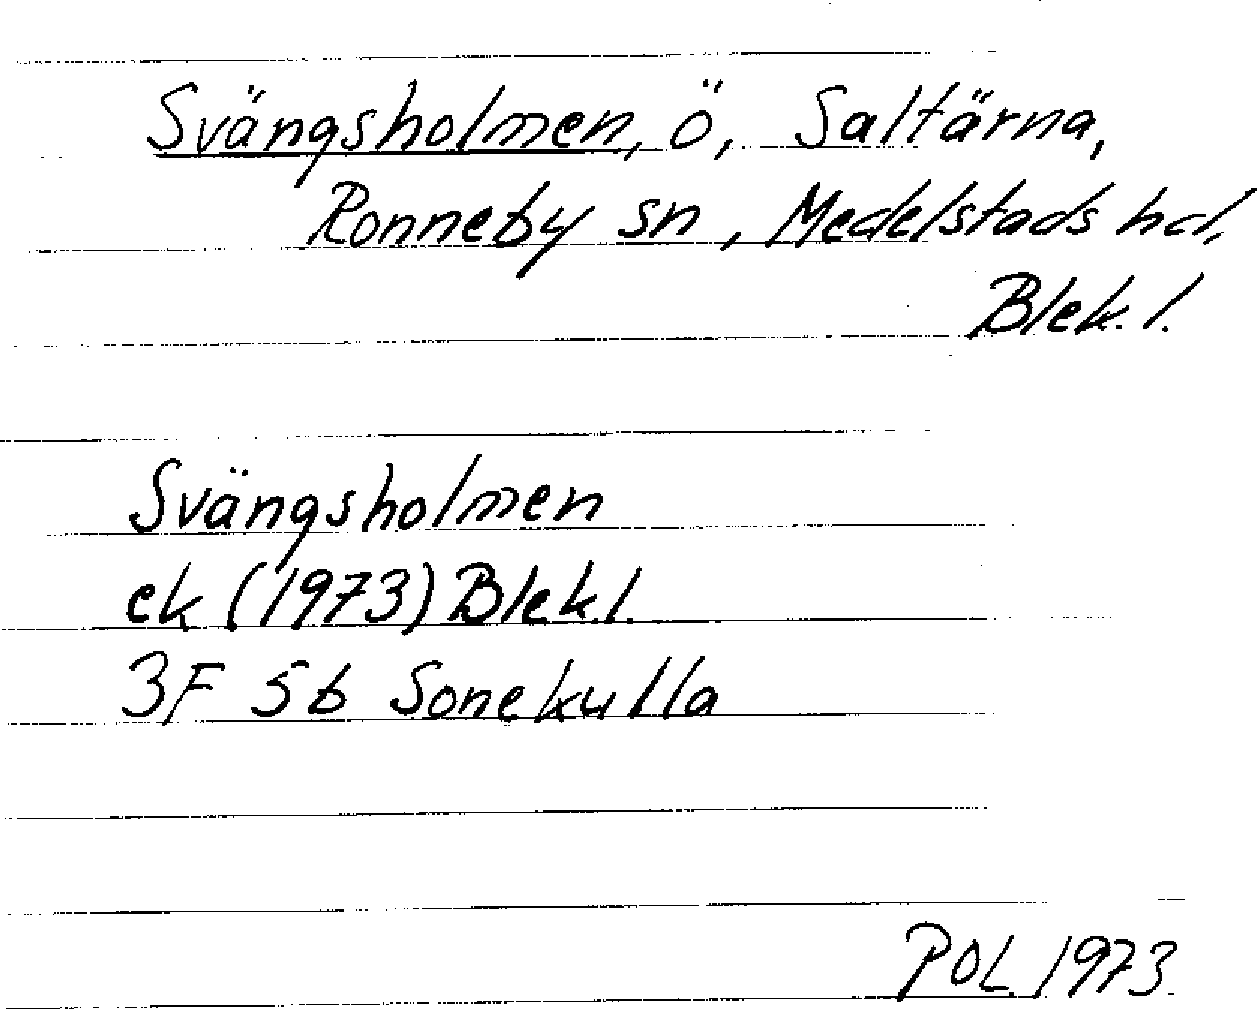 Svängsholmen, ö, Saltärna,
Ronneby sn, Medelstads hd,
Blek. l.
Svängsholmen
ek (1973) Blek.l.
3F 5b Sonekulla
POL 1973